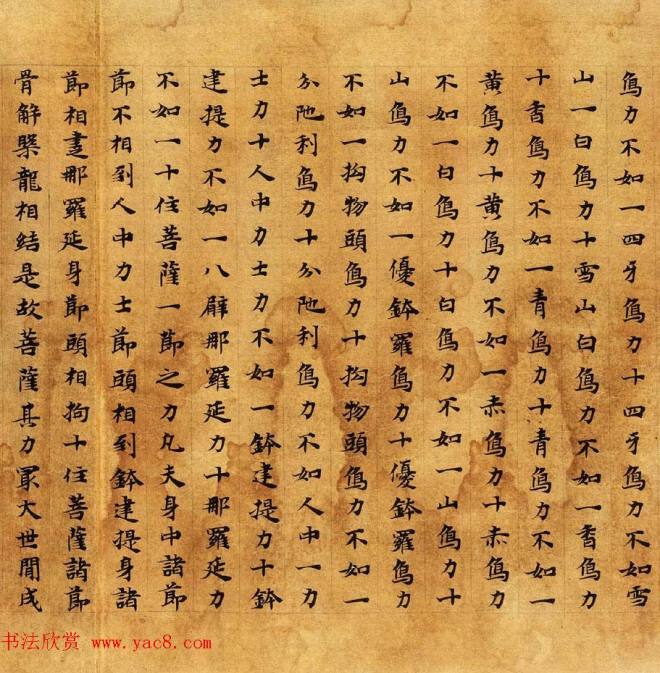 象力不如一四牙象力十四牙象力不如雪
山一白象力十雪山白象力不如一香象力
十香象力不如一青象力十青象力不如一
黄象力十黄象力不如一赤象力十赤象力
不如一白象力十白象力不如一山象力十
山象力不如一優鉢羅象力十優鉢羅象力
不如一拘物頭象力十拘物頭象力不如一
分陁利象力十分陁利象力不如人中一力
士力十人中力士力不如一鉢建提力十鉢
建提力不如一八臂那羅延力十那羅延力
不如一十住菩薩一節之力凡夫身中諸節
節不相到人中力士節頭相到鉢建提身諸
節相那羅延身節頭相拘十住菩薩諸節
骨解槃龍相結是故菩薩其力最大世間成
书法欣赏 www.yac8.com